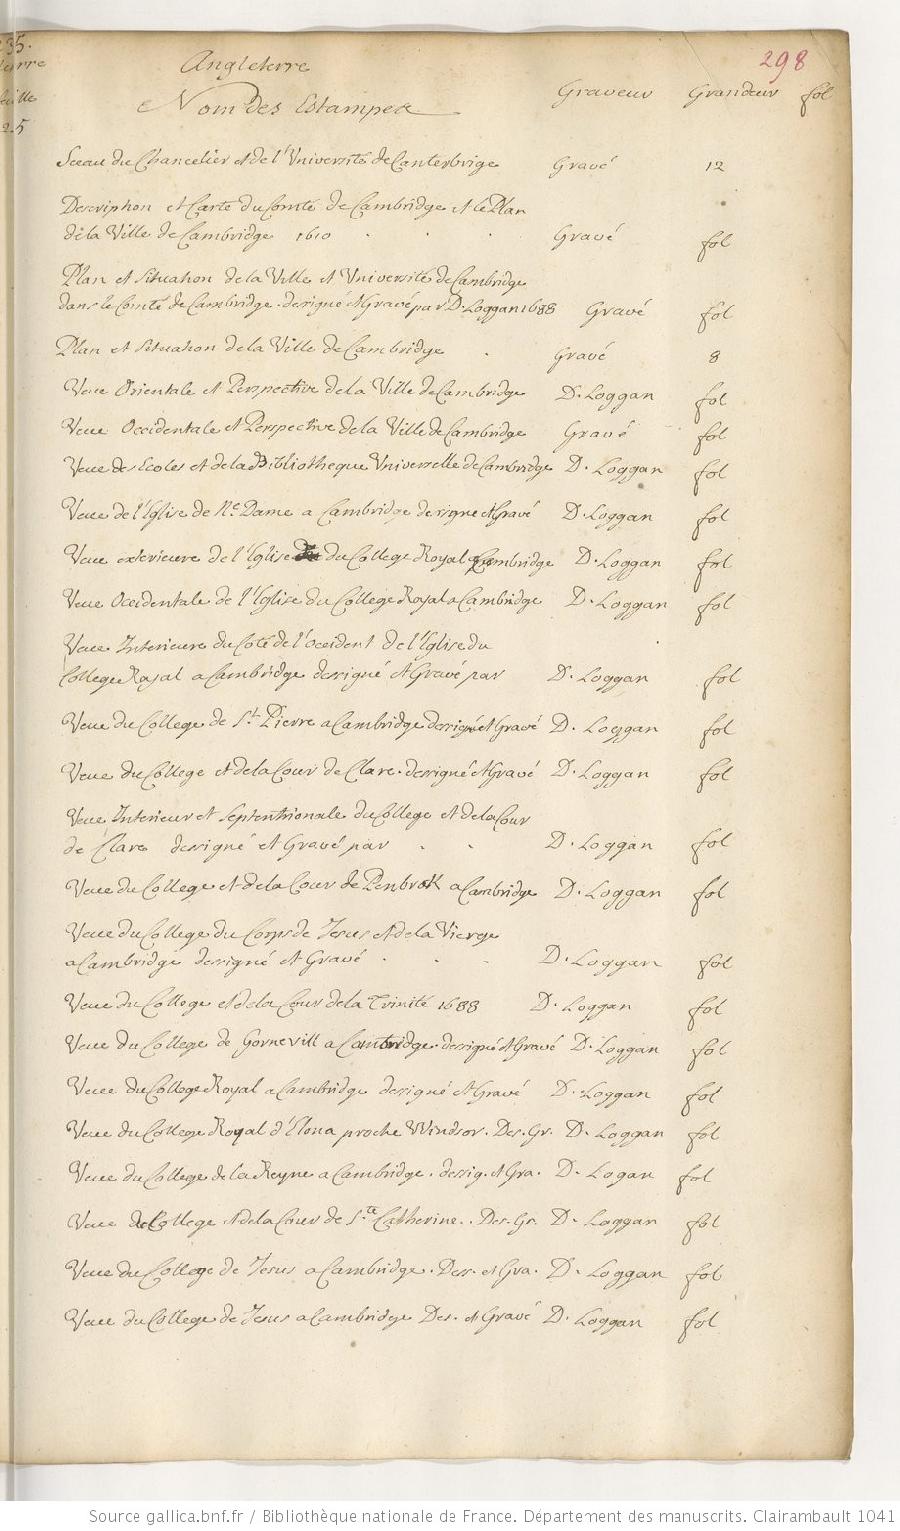 298
Angleterre
Nom des Estampes Graveur Grandeur fol
Sceau du Chancelier et de l'Université de Canterbrige Gravé 12
Description et Carte du Comté de Cambridge et le Plan
de la Ville de Cambridge 1610 . . . Gravé fol
Plan et Situation de la Ville et Université de Cambridge
dans le Comté de Cambridge designé et Gravé par D. Loggan 1688 Gravé fol
Plan et Situation de la Ville de Cambridge . Gravé 8
Veue Orientale et Perspective de la Ville de Cambridge D. Loggan fol
Veue Occidentale et Perspective de la Ville de Cambridge Gravé fol
Veue des Ecoles et de la Bibliotheque Universelle de Cambridge D. Loggan fol
Veue de l'Eglise de Ne. Dame a Cambridge designe et Gravé D. Loggan fol
Veue exterieure de l'Eglise du College Royal a Cambridge D. Loggan fol
Veue Occidentale de l'Eglise du College Royal a Cambridge D. Loggan fol
Veue Interieure du Coté de l'Occident de l'Eglise du
College Royal a Cambridge dessigné et Gravé par D. Loggan fol
Veue du College de St. Pierre a Cambridge dessigné et Gravé D. Loggan fol
Veue du College et de la Cour de Clare. dessigné et Gravé D. Loggan fol
Veue Interieur et Septentrionale du College et de la Cour
de Clare dessigné et Gravé par . . D. Loggan fol
Veue du College et de la Cour de Penbrok a Cambridge D. Loggan fol
Veue du College du Corps de Jesus et de la Vierge
a Cambridge dessigné et Gravé . . . D. Loggan fol
Veue du College et de la Cour de la Trinité 1688 D. Loggan fol
Veue du College de Gornevill a Cambridge. dessigné et Gravé D. Loggan fol
Veue du College Royal a Cambridge dessigné et Gravé D. Loggan fol
Veue du College Royal d'Etona proche Windsor. Des. Gr. D. Loggan fol
Veue du College de la Reyne a Cambridge. dessig. et Gra. D. Logan fol
Veue de College et de la Cour de Ste. Catherine. . Des. Gr. D. Loggan fol
Veue du College de Jesus a Cambridge. Dess. et Gra. D. Loggan fol
Veue du College de Jesus a Cambridge Des. et Gravé D. Loggan fol
Source gallica.bnf.fr / Bibliothèque nationale de France. Département des manuscrits. Clairambault 1041